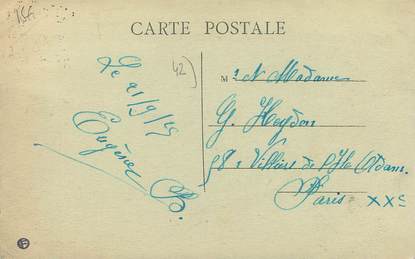 CARTE POSTALE
42)
Le 21/9/25
Eugène B.
M r et Madame
G. Heydon
58, Villiers de l'Isle Adam.
Paris XXe